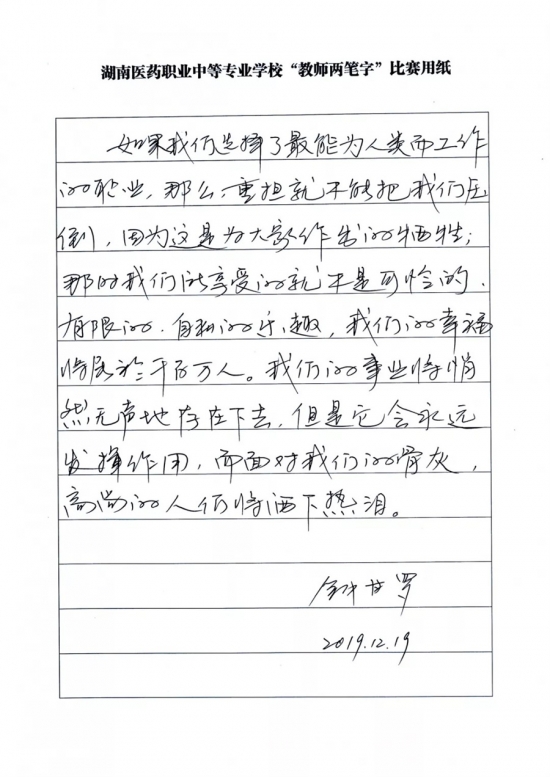 湖南医药职业中等专业学校“教师两笔字”比赛用纸
如果我们选择了最能为人类而工作
的职业,那么,重担就不能把我们压
倒,因为这是为大家作出的牺牲;
那时我们所享受的就不是可怜的、
有限的、自私的乐趣,我们的幸福
将属于千百万人。我们的事业将悄
然无声地存在下去,但是它会永远
发挥作用,而面对我们的骨灰,
高尚的人们将洒下热泪。
甘罗
2019.12.19